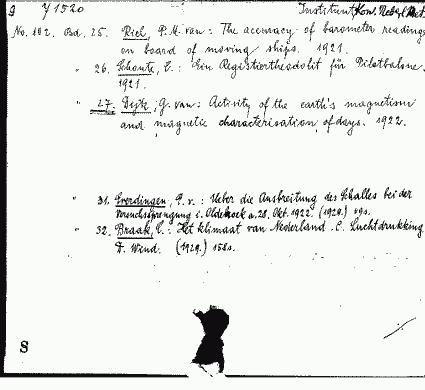 g y 1520 Institut, Kon. Neder. Met.
No. 102. Bd. 25. Riel, P. M. van: The accuracy of barometer readings
on board of moving ships. 1921.
" 26. Schoute, C.: Ein Registriertheodolit für Pilotbalone.
1921.
" 27. Dijk, G. van: Activity of the earth's magnetism
and magnetic characterisation of days. 1922.
" 31. Everdingen, E. v.: Ueber die Ausbreitung des Schalles bei der
Versuchssprengung i. Oldebroek a. 28. Okt. 1922. (1924.)
" 32. Braak, C.: Het klimaat van Nederland. C. Luchtdrukking
D. Wind. (1929.) 158s.
S